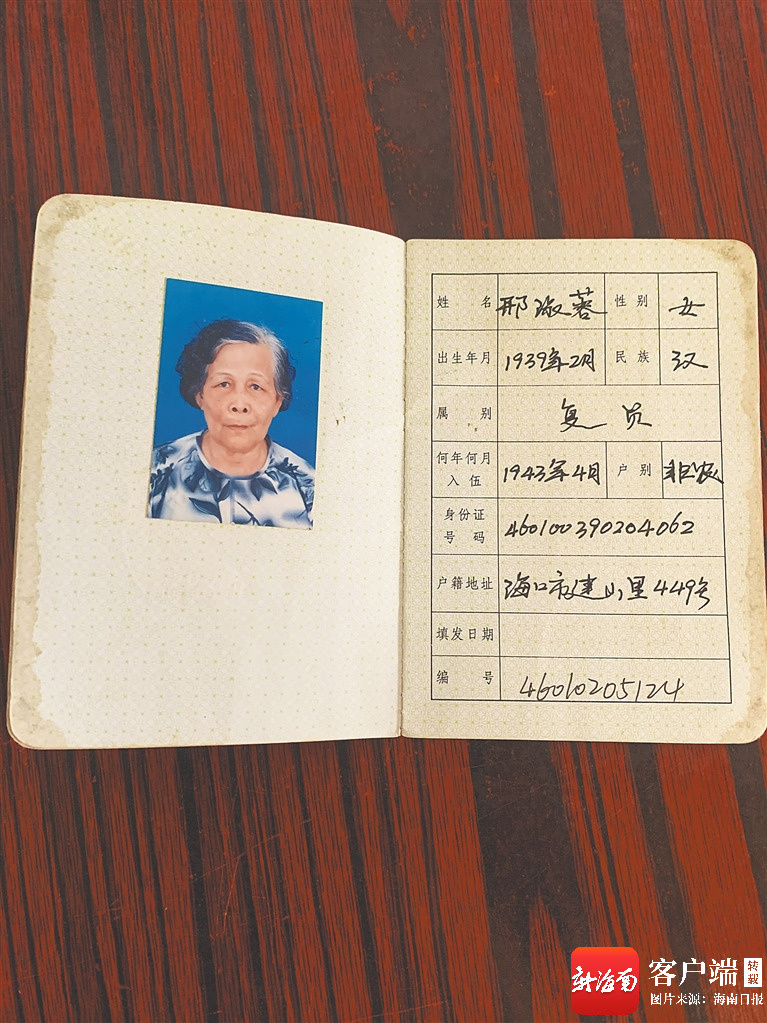 姓 名 邢淑蓉 性别 女
出生年月 1939年2月 民族 汉
属 别 复员
何年何月入伍 1943年4月 户别 非农
身份证号码 460100390204062
户籍地址 海口市建山里449号
填发日期
编 号 46010205124
新海南 客户端 转载
图片来源：海南日报